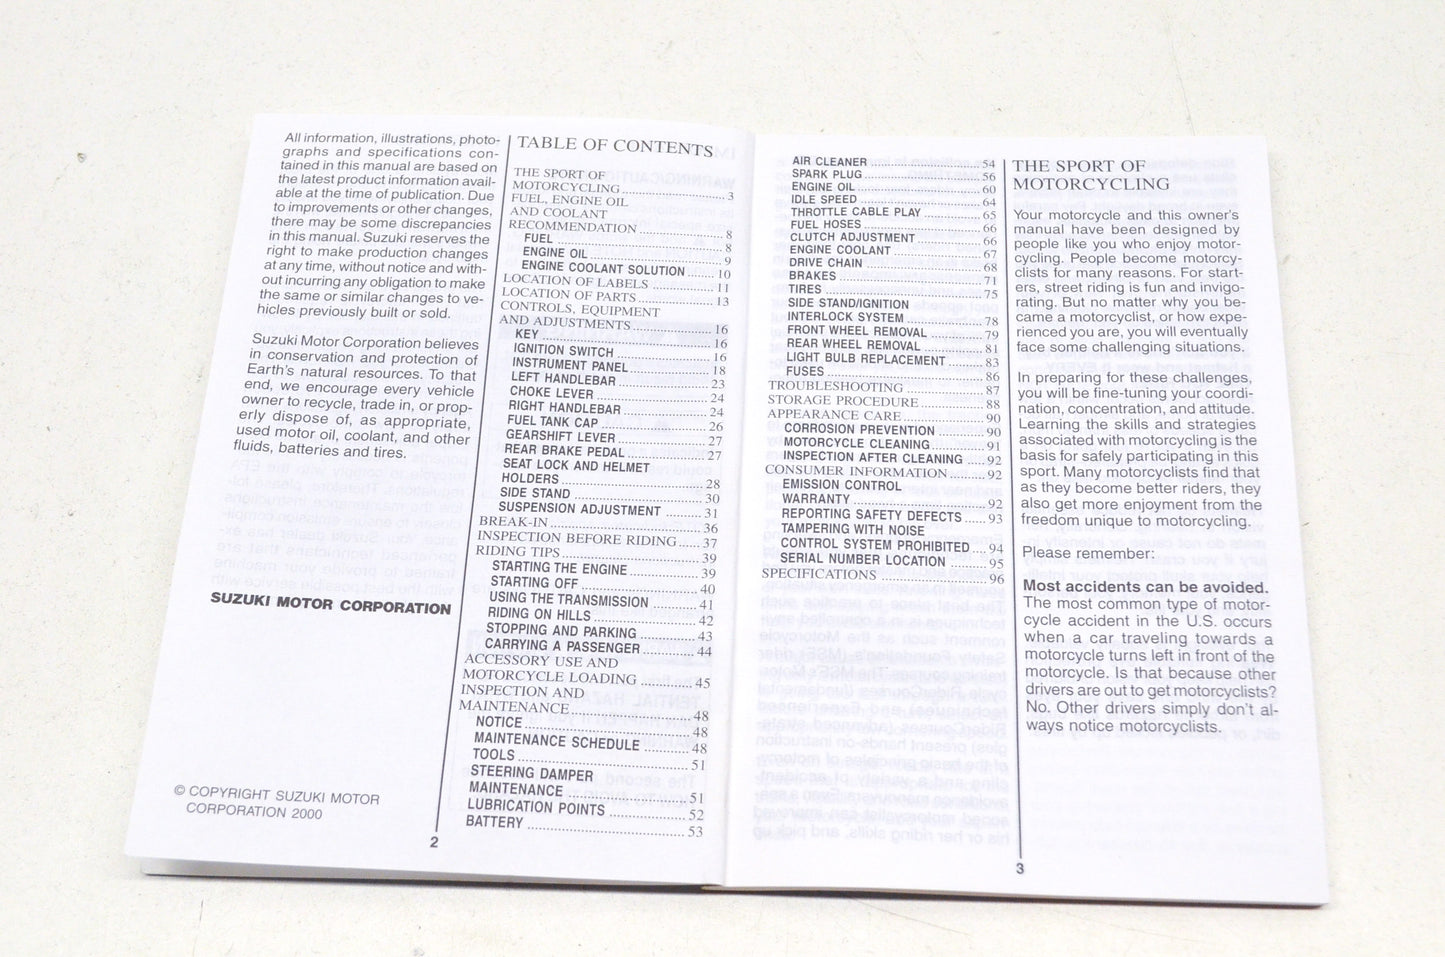 All information, illustrations, photo-
graphs and specifications con-
tained in this manual are based on
the latest product information avail-
able at the time of publication. Due
to improvements or other changes,
there may be some discrepancies
in this manual. Suzuki reserves the
right to make production changes
at any time, without notice and with-
out incurring any obligation to make
the same or similar changes to ve-
hicles previously built or sold.
Suzuki Motor Corporation believes
in conservation and protection of
Earth's natural resources. To that
end, we encourage every vehicle
owner to recycle, trade in, or prop-
erly dispose of, as appropriate,
used motor oil, coolant, and other
fluids, batteries and tires.
SUZUKI MOTOR CORPORATION
© COPYRIGHT SUZUKI MOTOR
CORPORATION 2000
TABLE OF CONTENTS
THE SPORT OF
MOTORCYCLING ........ 3
FUEL, ENGINE OIL
AND COOLANT
RECOMMENDATION ........ 8
FUEL ........ 8
ENGINE OIL ........ 9
ENGINE COOLANT SOLUTION ........ 10
LOCATION OF LABELS ........ 11
LOCATION OF PARTS ........ 13
CONTROLS, EQUIPMENT
AND ADJUSTMENTS ........ 16
KEY ........ 16
IGNITION SWITCH ........ 16
INSTRUMENT PANEL ........ 18
LEFT HANDLEBAR ........ 23
CHOKE LEVER ........ 24
RIGHT HANDLEBAR ........ 24
FUEL TANK CAP ........ 26
GEARSHIFT LEVER ........ 27
REAR BRAKE PEDAL ........ 27
SEAT LOCK AND HELMET
HOLDERS ........ 28
SIDE STAND ........ 30
SUSPENSION ADJUSTMENT ........ 31
BREAK-IN ........ 36
INSPECTION BEFORE RIDING ........ 37
RIDING TIPS ........ 39
STARTING THE ENGINE ........ 39
STARTING OFF ........ 40
USING THE TRANSMISSION ........ 41
RIDING ON HILLS ........ 42
STOPPING AND PARKING ........ 43
CARRYING A PASSENGER ........ 44
ACCESSORY USE AND
MOTORCYCLE LOADING ........ 45
INSPECTION AND
MAINTENANCE ........ 48
NOTICE ........ 48
MAINTENANCE SCHEDULE ........ 48
TOOLS ........ 51
STEERING DAMPER
MAINTENANCE ........ 51
LUBRICATION POINTS ........ 52
BATTERY ........ 53
2
AIR CLEANER ........ 54
SPARK PLUG ........ 56
ENGINE OIL ........ 60
IDLE SPEED ........ 64
THROTTLE CABLE PLAY ........ 65
FUEL HOSES ........ 66
CLUTCH ADJUSTMENT ........ 66
ENGINE COOLANT ........ 67
DRIVE CHAIN ........ 68
BRAKES ........ 71
TIRES ........ 75
SIDE STAND/IGNITION
INTERLOCK SYSTEM ........ 78
FRONT WHEEL REMOVAL ........ 79
REAR WHEEL REMOVAL ........ 81
LIGHT BULB REPLACEMENT ........ 83
FUSES ........ 86
TROUBLESHOOTING ........ 87
STORAGE PROCEDURE ........ 88
APPEARANCE CARE ........ 90
CORROSION PREVENTION ........ 90
MOTORCYCLE CLEANING ........ 91
INSPECTION AFTER CLEANING ........ 92
CONSUMER INFORMATION ........ 92
EMISSION CONTROL
WARRANTY ........ 92
REPORTING SAFETY DEFECTS ........ 93
TAMPERING WITH NOISE
CONTROL SYSTEM PROHIBITED .... 94
SERIAL NUMBER LOCATION ........ 95
SPECIFICATIONS ........ 96
THE SPORT OF
MOTORCYCLING
Your motorcycle and this owner's
manual have been designed by
people like you who enjoy motor-
cycling. People become motorcy-
clists for many reasons. For start-
ers, street riding is fun and invigo-
rating. But no matter why you be-
came a motorcyclist, or how expe-
rienced you are, you will eventually
face some challenging situations.
In preparing for these challenges,
you will be fine-tuning your coordi-
nation, concentration, and attitude.
Learning the skills and strategies
associated with motorcycling is the
basis for safely participating in this
sport. Many motorcyclists find that
as they become better riders, they
also get more enjoyment from the
freedom unique to motorcycling.
Please remember:
Most accidents can be avoided.
The most common type of motor-
cycle accident in the U.S. occurs
when a car traveling towards a
motorcycle turns left in front of the
motorcycle. Is that because other
drivers are out to get motorcyclists?
No. Other drivers simply don't al-
ways notice motorcyclists.
3